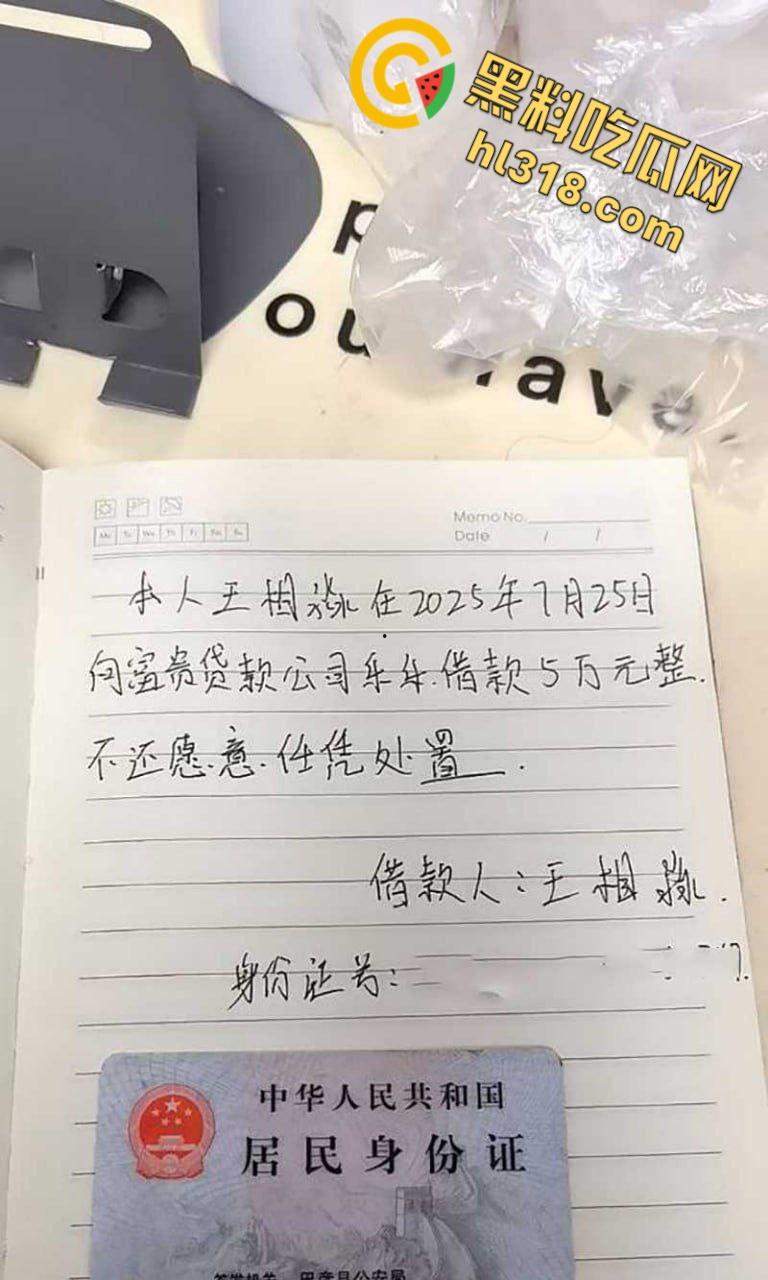 黑料吃瓜网
hl318.com
p
ou
rave.
Memo No.
Mo Tu We Th Fr Sa Su
Date / /
本人王相淼在2025年7月25日
向富贵贷款公司乐乐.借款5万元整.
不还愿意.任凭处置.
借款人:王相淼.
身份证号:
中华人民共和国
居民身份证